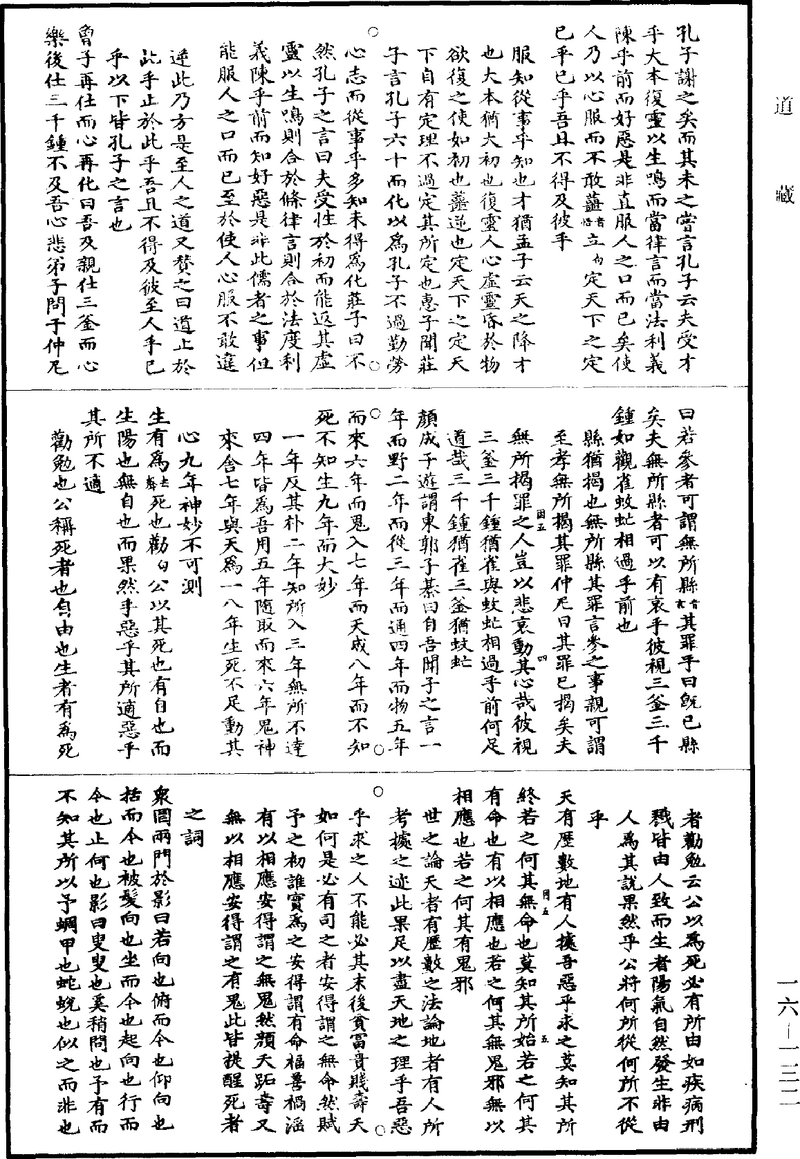 道藏
孔子謝之矣而其未之嘗言孔子云夫受才
乎大本復靈以生鳴而當律言而當法利義
陳乎前而好惡是非直服人之口而已矣使
人乃以心服而不敢蘁立定天下之定
已乎已乎吾且不得及彼乎
服知從事乎知也才猶孟子云天之降才
也大本猶大初也復靈人心虛靈昏於物
欲復之使如初也蘁逆也定天下之定天
下自有定理不過定其所定也惠子聞莊
子言孔子六十而化以為孔子不過勤勞
心志而從事乎多知未得為化莊子曰不
然孔子之言曰夫受性於初而能返其虛
靈以生鳴則合於條律言則合於法度利
義陳乎前而知好惡是非此儒者之事但
能服人之口而已至於使人心服不敢違
逆此乃方是至人之道又贊之曰道止於
此乎止於此乎吾且不得及彼至人乎已
乎以下皆孔子之言也
曾子再仕而心再化曰吾及親仕三釜而心
樂後仕三千鍾不及吾心悲弟子問于仲尼
曰若參者可謂無所縣其罪乎曰既已縣
矣夫無所縣者可以有哀乎彼視三釜三千
鍾如觀雀蚊虻相過乎前也
縣猶掲也無所縣其罪言參之事親可謂
至孝無所掲其罪仲尼曰其罪已掲矣夫
無所掲罪之人豈以悲哀動其心哉彼視
三釜三千鍾猶雀與蚊虻相過乎前何足
道哉三千鍾猶雀三釜猶蚊虻
顏成子遊謂東郭子綦曰自吾聞子之言一
年而野二年而從三年而通四年而物五年
而來六年而鬼入七年而天成八年而不知
死不知生九年而大妙
一年反其朴二年知所入三年無所不達
四年皆為吾用五年隨取而來六年鬼神
來舍七年與天為一八年生死不足動其
心九年神妙不可測
生有為死也勸公以其死也有自也而
生陽也無自也而果然乎惡乎其所適惡乎
其所不適
勸勉也公稱死者也自由也生者有為死
者勸勉云公以為死必有所由如疾病刑
戮皆由人致而生者陽氣自然發生非由
人為其說果然乎公將何所從何所不從
乎
天有歷數地有人據吾惡乎求之莫知其所
終若之何其無命也莫知其所始若之何其
有命也有以相應也若之何其無鬼邪無以
相應也若之何其有鬼邪
世之論天者有歷數之法論地者有人所
考據之迹此果足以盡天地之理乎吾惡
乎求之人不能必其未後貧富貴賤壽夭
如何是必有司之者安得謂之無命然賦
予之初誰實為之安得謂有命福善禍淫
有以相應安得謂之無鬼然顏夭跖壽又
無以相應安得謂之有鬼此皆提醒死者
之詞
衆罔兩問於影曰若向也俯而今也仰向也
括而今也被髪向也坐而今也起向也行而
今也止何也影曰叟叟也奚稍問也予有而
不知其所以予蜩甲也蛇蛻也似之而非也
一六—一三二